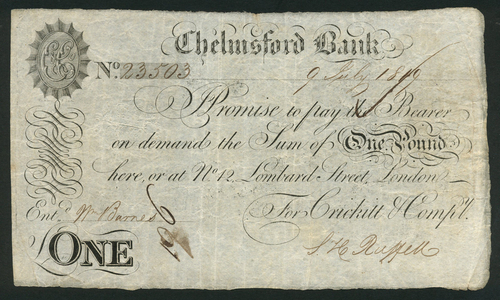 Chelmsford Bank
No. 23503 9 July 1819
I Promise to pay the Bearer
on demand the Sum of One Pound
here, or at No 12 Lombard-Street, London
Ent.d Wm Barnes For Crickitt & Comp.y
ONE S H Russell